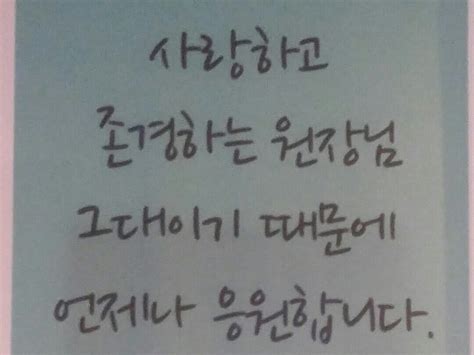 사랑하고
존경하는 원장님
그대이기 때문에
언제나 응원합니다.